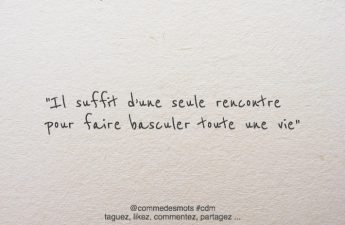 "Il suffit d'une seule rencontre
pour faire basculer toute une vie"
@commedesmots #cdm
taguez, likez, commentez, partagez ...